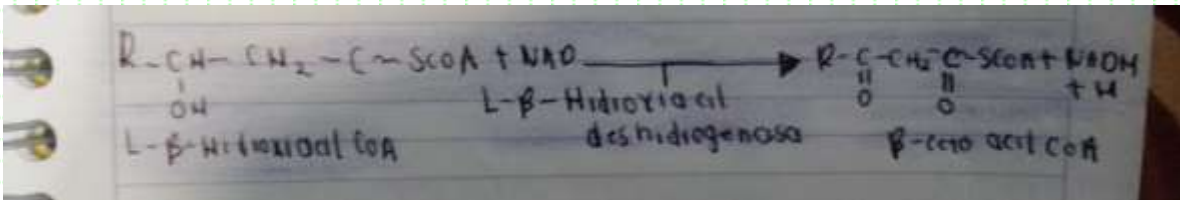 R-CH-CH₂-C~SCoA + NAD → R-C-CH₂-C-SCoA + NADH
OH O O + H
L-β-Hidroxiacil
deshidrogenasa
L-β-Hidroxiacil CoA β-ceto acil CoA